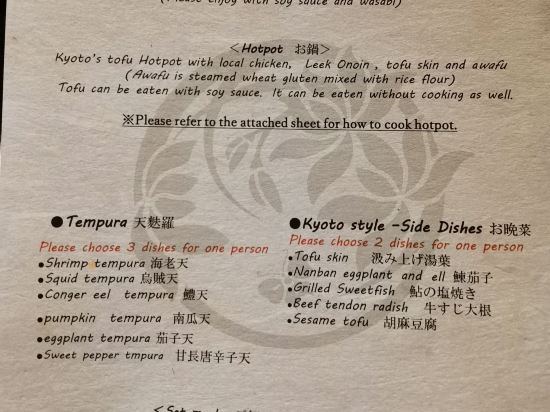 (Please enjoy with soy sauce and wasabi)
<Hotpot お鍋>
Kyoto's tofu Hotpot with local chicken, Leek Onoin , tofu skin and awafu
(Awafu is steamed wheat gluten mixed with rice flour)
Tofu can be eaten with soy sauce. It can be eaten without cooking as well.
※Please refer to the attached sheet for how to cook hotpot.
●Tempura 天麩羅
Please choose 3 dishes for one person
●Shrimp tempura 海老天
●Squid tempura 烏賊天
●Conger eel tempura 鱧天
●pumpkin tempura 南瓜天
●eggplant tempura 茄子天
●Sweet pepper tmpura 甘長唐辛子天
●Kyoto style -Side Dishes お晩菜
Please choose 2 dishes for one person
●Tofu skin 汲み上げ湯葉
●Nanban eggplant and ell 鰊茄子
●Grilled Sweetfish 鮎の塩焼き
●Beef tendon radish 牛すじ大根
●Sesame tofu 胡麻豆腐